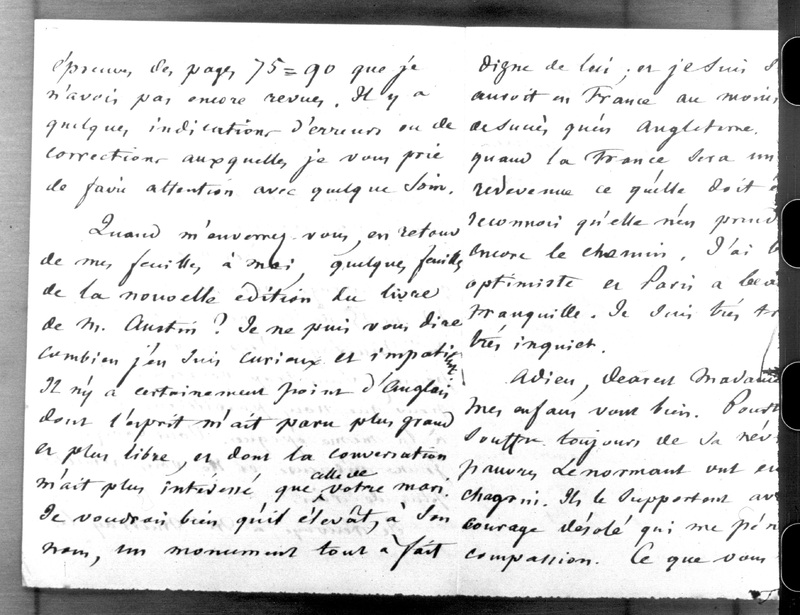 épreuves des pages 75=90 que je
n'avois pas encore revues. Il y a
quelques indications d'erreurs ou de
corrections auxquelles je vous prie
de faire attention avec quelque soin.
Quand m'enverrez vous, en retour
de mes feuilles à moi, quelques feuilles
de la nouvelle édition du livre
de M. Austin? Je ne puis vous dire
combien j'en suis curieux et impatient.
Il n'y a certainement point d'Anglois
dont l'esprit m'ait paru plus grand
et plus libre, et dont la conversation
m'ait plus intéressé que celle de votre mari.
Je voudrois bien qu'il élevât, à son
nom, un monument tout à fait
digne de lui; et je suis s
auroit en France au moins
de succès qu'en Angleterre.
quand la France sera un
redevenue ce qu'elle doit ê
reconnois qu'elle n'en prend
encore le chemin. J'ai
optimiste et Paris a
tranquille. Je suis très tr
très inquiet.
Adieu, dearest Madame
Mes enfans vont bien.
souffre toujours de sa név
pauvres Lenormant ont eu
chagrin. Ils le supportent av
courage désolé qui me pén
compassion. Ce que vous